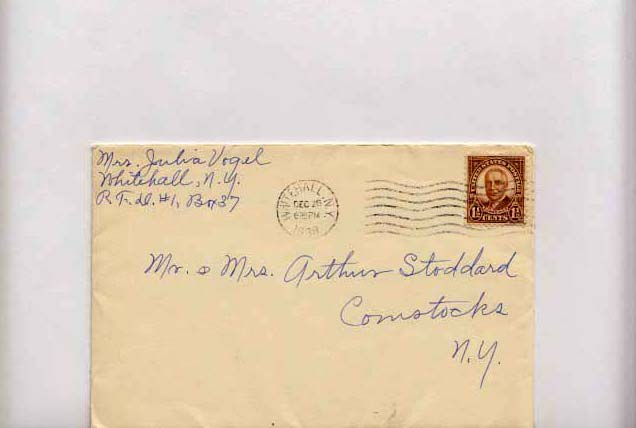 Mrs. Julia Vogel
Whitehall, N.Y.
R.F.d. #1, Box 37
WHITEHALL N.Y.
DEC 28
PM
1938
UNITED STATES POSTAGE
1½ CENTS 1½
Mr. & Mrs. Arthur Stoddard
Comstocks
N.Y.